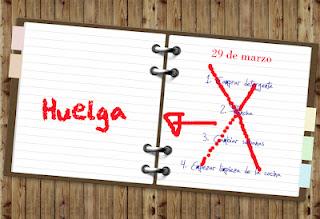 Huelga
29 de marzo
1. Comprar detergente
2. Plancha
3. Cambiar sábanas
4. Empezar limpieza de la cocina